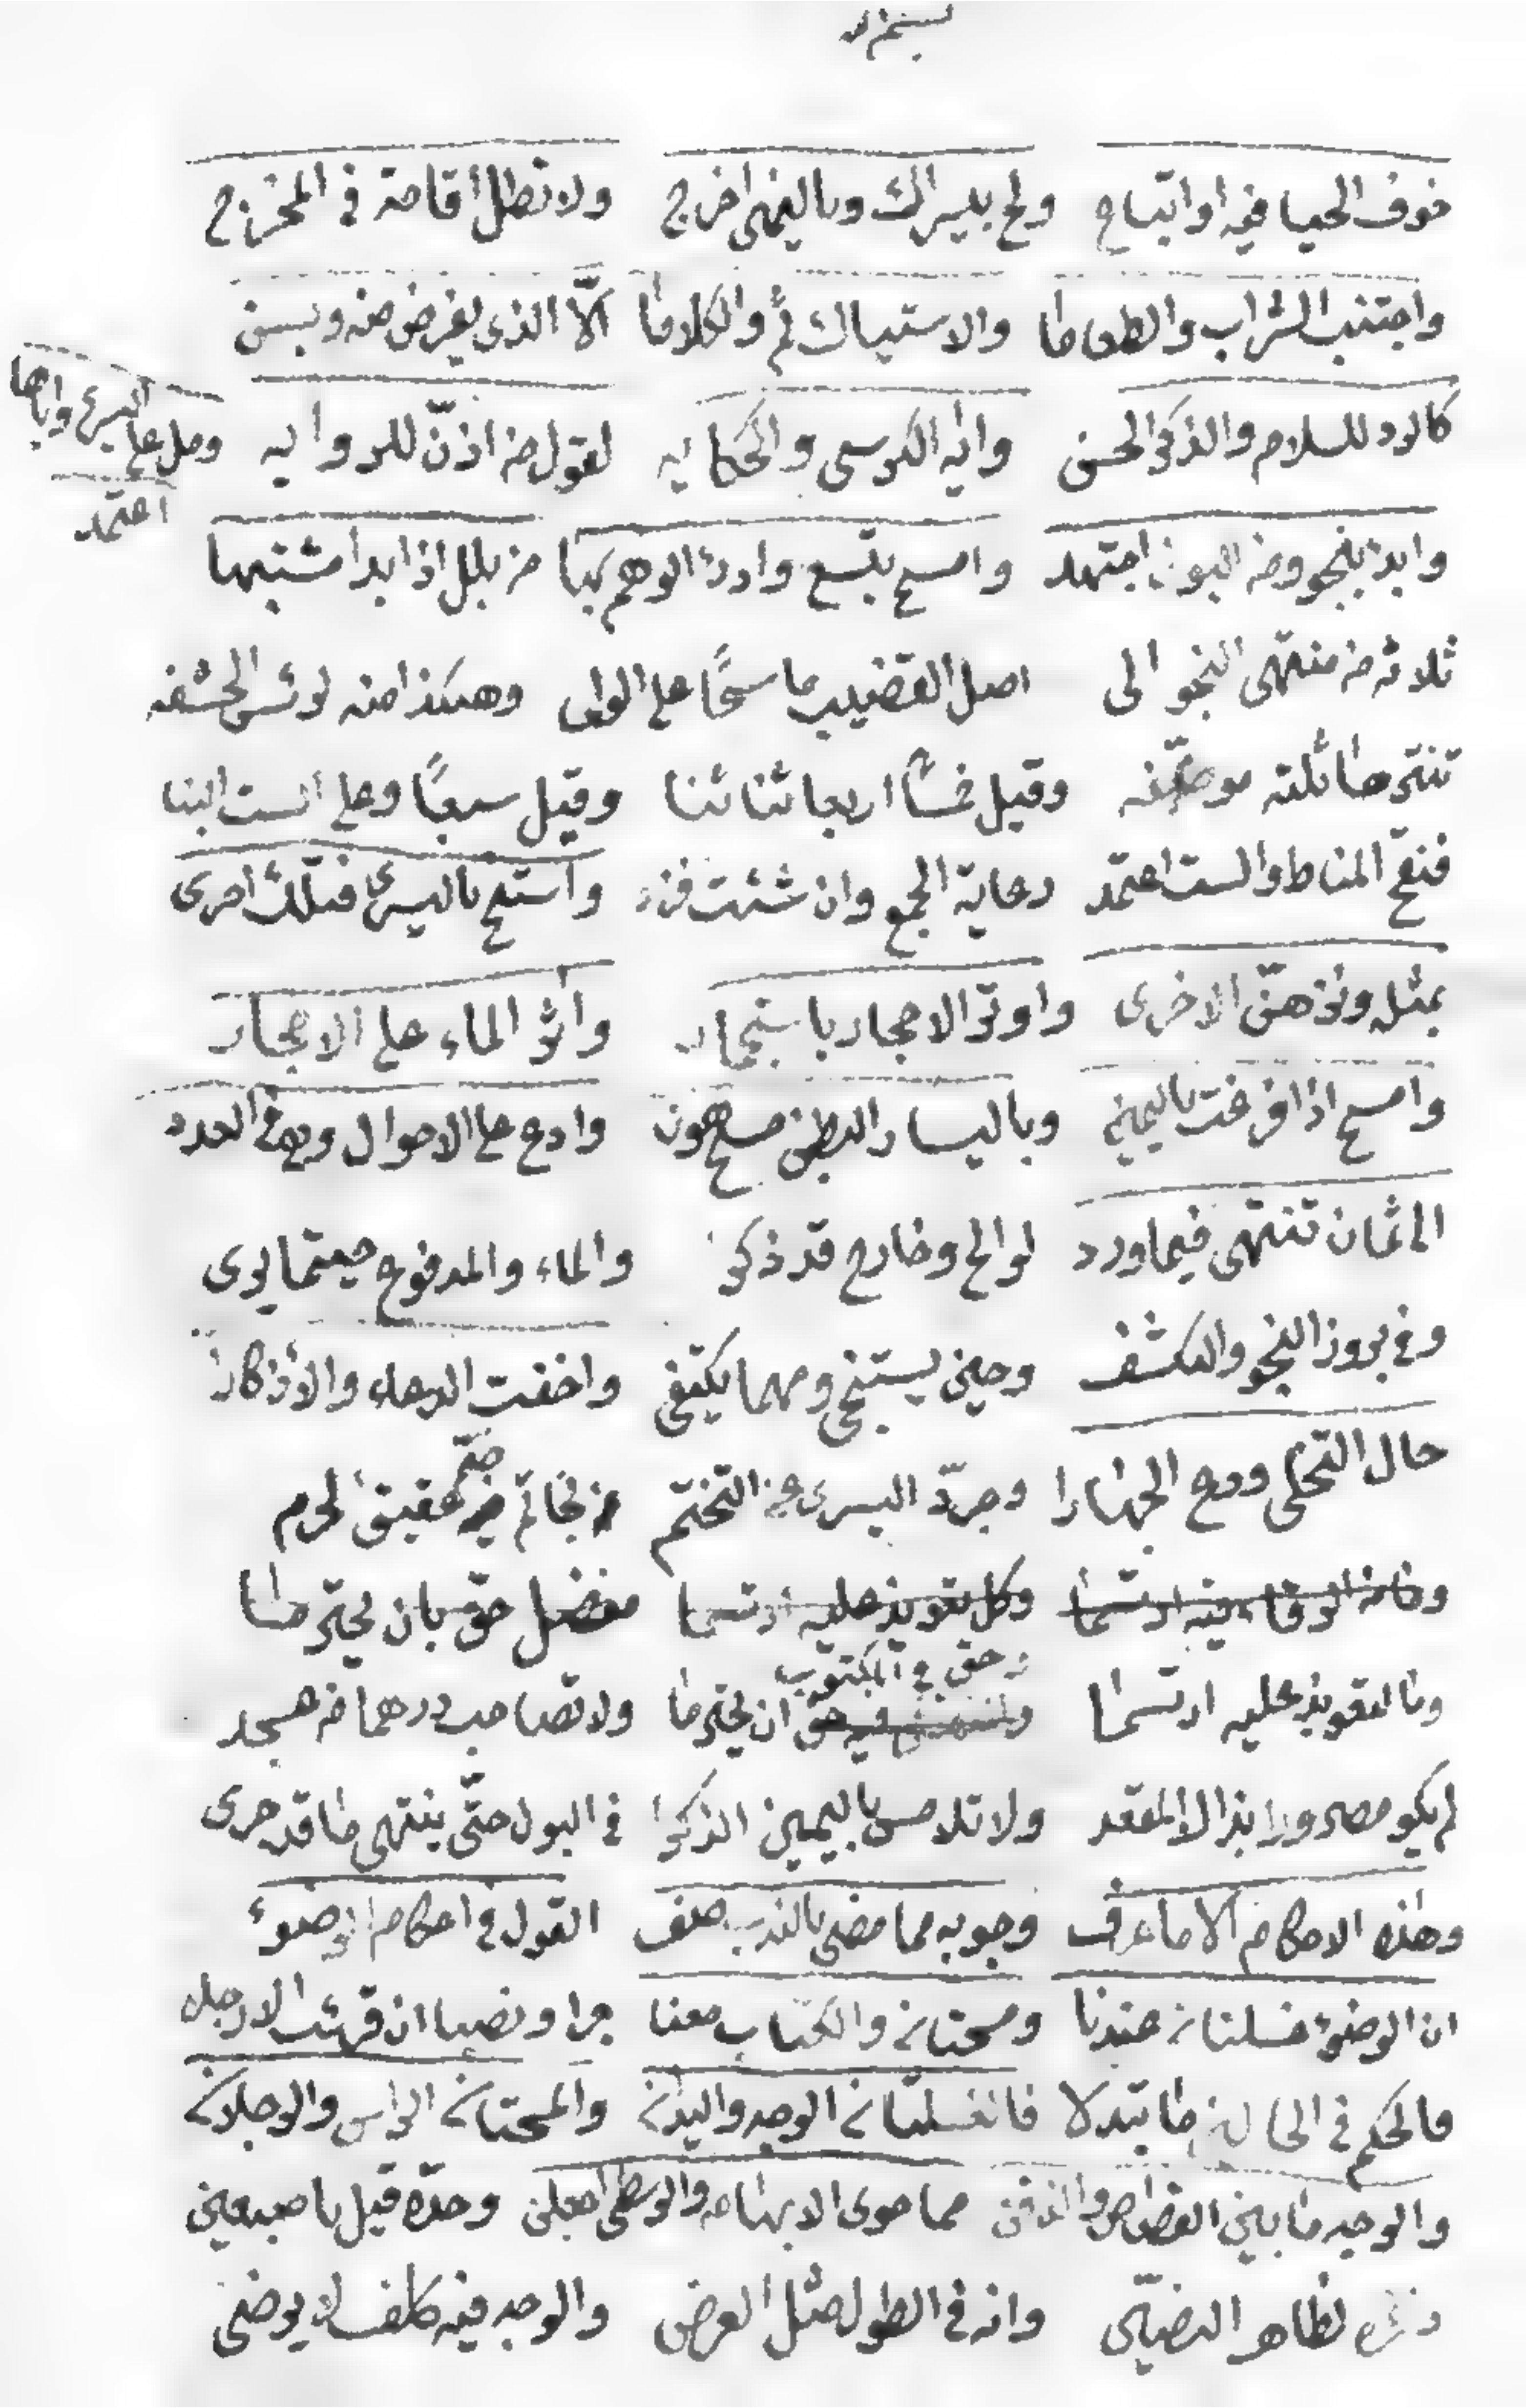 خوف الحيا فيه او اتباع ولج بليسراك وباليمنى اخرج ولا تطل أقامة في المخرج
واجتنب الشراب والطعاما والاستياك ثمّ والكلاما الّا الذى يفرض منه ويسن
كالرد للسلام والذكر الحسن واية الكرسى والحكايه لقول من اذّن للروايه ومل على اليسرى واياها
اعتمد
وابدء بنجو ومن البون اجتهد وامسح بتسع وادرء الوهم بها من بلل اذا بدا مشتبها
ثلاثه من منتهى النجو الى اصل القضيب ماسحًا على الولى وهكذا منه لرئس الحشفه
تنترها ثلثه وقيل خمسًا اربعا ثنا ثنا وقيل سبعًا وعلى الست البنا
فنقح المناط والست اعتمد رعاية الجمع وان شئت فزد واستنج باليسرى فتلك احرى
بمثله ونزهنّ الاخرى واوتر الاحجار باستجمار واثر الماء على الاحجار
وامسح اذا فرغت باليمين وباليسار البطن مسح هون وادع على الاحوال وهى في العدد
الى ثمان تنتهى فيما ورد لوالج وخارج قد ذكر والماء والمدفوع حيثما يرى
وفي بروز النجو والتكشف وحين يستنجى ومهما يكتفى واخفت الدعاء والأذكارا
حال التخلى ودع الجهارا وجرّد اليسرى عن التختم من خاتم عقيق الحرم
مفضل حق بان يحترما
وما التعويذ عليه ارتسما وحق في المكتوب ان يحترما ولا تصاحب درهما من عسجد
لم يكو مصرورا بذا لا المقعد ولا تلامس باليمين الذكرا في البول حتّى ينتهى ما قد جرى
وهذه الاحكام الا ما عرف وجوبه مما مضى بالندب صف القول في احكام الوضوء
ان الوضوء غسلتان عندنا ومسحتان والكتاب معنا جرا ونصبا ان قرئت الارجلا
فالحكم في الحالين ما تبدلا فالغسلتان الوجه واليدان والمسحتان الراس والرجلان
والوجه ما بين القصاص والذقن مما حوى الابهام والوسطى اجعلن وحدّه قيل باصبعين
لظاهر النصّين وانه في الطول مثل العرض والوجه فيه كلف لا يرضى